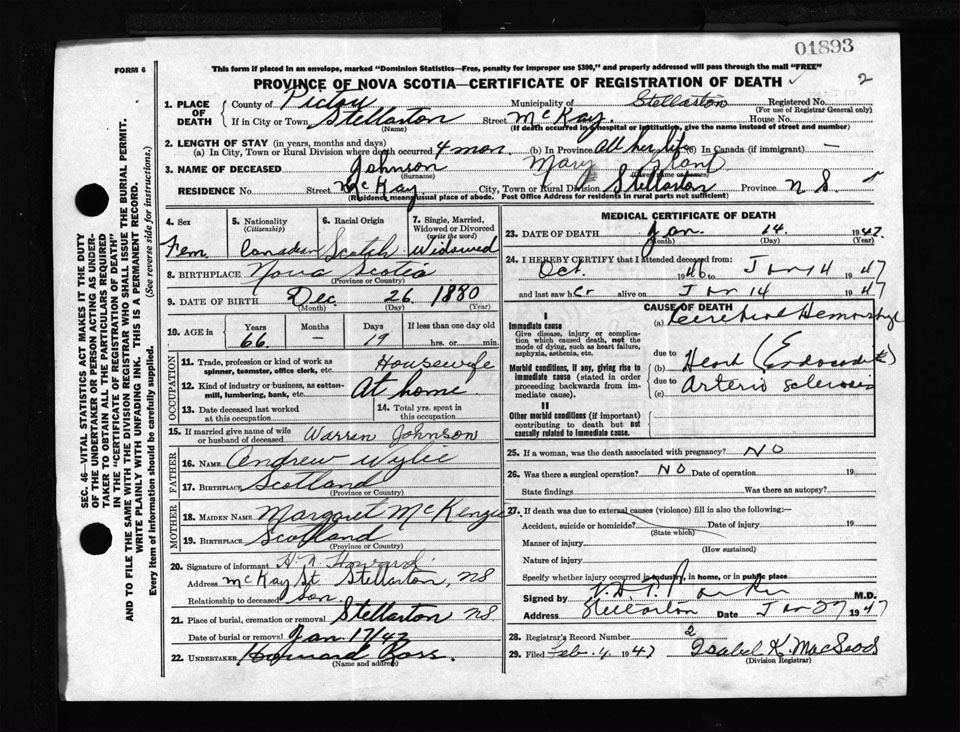 01893
FORM 6
This form if placed in an envelope, marked "Dominion Statistics—Free, penalty for improper use $300," and properly addressed will pass through the mail "FREE"
PROVINCE OF NOVA SCOTIA—CERTIFICATE OF REGISTRATION OF DEATH 2
1. PLACE OF DEATH County of Pictou Municipality of Stellarton Registered No.
(For use of Registrar General only)
If in City or Town Stellarton Street McKay. House No.
(Name) (If death occurred in a hospital or institution, give the name instead of street and number)
2. LENGTH OF STAY (in years, months and days)
(a) In City, Town or Rural Division where death occurred 4 mon. (b) In Province All her life (c) In Canada (if immigrant) —
3. NAME OF DECEASED Johnson Mary
(Surname)
RESIDENCE No Street McKay City, Town or Rural Division Stellarton Province N.S.
(Residence means usual place of abode. Post Office Address for residents in rural parts not sufficient)
4. Sex 5. Nationality 6. Racial Origin 7. Single, Married, Widowed or Divorced
(Citizenship) (write the word)
Fem. Canadian Scotch Widowed
8. BIRTHPLACE Nova Scotia
(Province or Country)
9. DATE OF BIRTH Dec. 26 1880
(Month) (Day) (Year)
10. AGE in Years Months Days If less than one day old
66. — 19 hrs. or min.
OCCUPATION
11. Trade, profession or kind of work as spinner, teamster, office clerk, etc. Housewife
12. Kind of industry or business, as cotton-mill, lumbering, bank, etc. At home
13. Date deceased last worked at this occupation 14. Total yrs. spent in this occupation
15. If married give name of wife or husband of deceased Warren Johnson
FATHER
16. NAME Andrew Wylie
17. BIRTHPLACE Scotland
(Province or Country)
MOTHER
18. MAIDEN NAME Margaret McKenzie
19. BIRTHPLACE Scotland
(Province or Country)
20. Signature of informant Howard
Address McKay St Stellarton, NS
Relationship to deceased son.
21. Place of burial, cremation or removal Stellarton NS.
Date of burial or removal Jan 17/47
22. UNDERTAKER Howard Ross.
(Name and address)
MEDICAL CERTIFICATE OF DEATH
23. DATE OF DEATH Jan. 14. 1947
(Month) (Day) (Year)
24. I HEREBY CERTIFY that I attended deceased from:
Oct. 1946 to Jan 14 1947
and last saw her alive on Jan 14 1947
CAUSE OF DEATH
I
Immediate cause
Give disease, injury or complication which caused death, not the mode of dying, such as heart failure, asphyxia, asthenia, etc.
(a) Cerebral Hemorrhage
due to
Morbid conditions, if any, giving rise to immediate cause (stated in order proceeding backwards from immediate cause).
(b) Heart (Endocarditis)
due to
(c) Arterio Sclerosis
II
Other morbid conditions (if important) contributing to death but not causally related to immediate cause.
25. If a woman, was the death associated with pregnancy? NO
26. Was there a surgical operation? NO Date of operation 19
State findings Was there an autopsy?
27. If death was due to external causes (violence) fill in also the following:—
Accident, suicide or homicide? Date of injury 19
(State which)
Manner of injury
(How sustained)
Nature of injury
Specify whether injury occurred in industry, in home, or in public place
Signed by Parker M.D.
Address Stellarton Date Jan 27 1947
28. Registrar's Record Number 2
29. Filed Feb. 4 1947 Isabel K. MacLeod
(Division Registrar)
SEC. 46—VITAL STATISTICS ACT MAKES IT THE DUTY
OF THE UNDERTAKER OR PERSON ACTING AS UNDER-
TAKER TO OBTAIN ALL THE PARTICULARS REQUIRED
IN THE "CERTIFICATE OF REGISTRATION OF DEATH"
AND TO FILE THE SAME WITH THE DIVISION REGISTRAR WHO SHALL ISSUE THE BURIAL PERMIT.
WRITE PLAINLY WITH UNFADING INK. THIS IS A PERMANENT RECORD.
Every item of information should be carefully supplied. (See reverse side for instructions.)